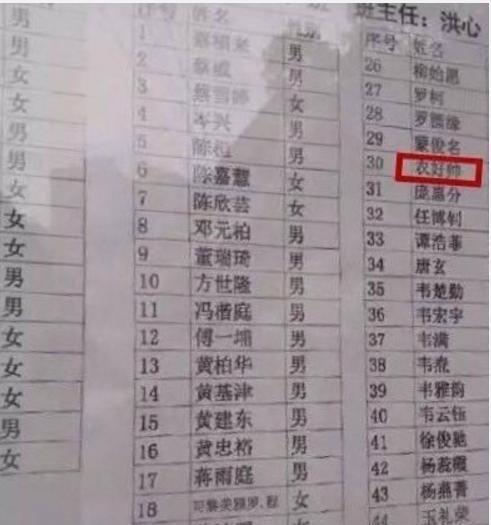 男
男
女
男
男
女
女
女
男
男
女
女
女
男
女
序号 姓名 性别
1 男
2 蔡威 男
3 蔡雪婷 女
4 岑兴 男
5 陈恒 男
6 陈嘉慧 女
7 陈欣芸 女
8 邓元柏 男
9 董瑞琦 男
10 方世隆 男
11 冯楷庭 男
12 傅一 男
13 黄柏华 男
14 黄基津 男
15 黄建东 男
16 黄忠裕 男
17 蒋雨庭 男
18 女
班主任：洪心
序号 姓名
26 柳始恩
27 罗柯
28 罗缘
29 蒙俊名
30 农好帅
31 庞惠分
32 任博钊
33 谭浩菲
34 唐玄
35 韦楚勤
36 韦宏宇
37 韦满
38 韦焘
39 韦雅韵
40 韦云钰
41 徐俊驰
42 杨蕊霞
43 杨燕菁
44 玉礼荣